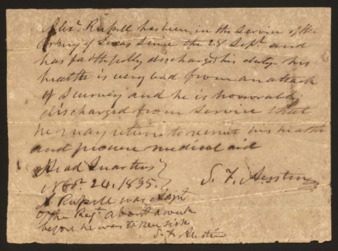 Alexr. Russell has been in the Service of the
Army of Texas Since the 28 Sept. and
has faithfully discharged his duty. his
health is very bad from an attack
of Scurvey and he is honorably
discharged from Service that
he may return to recruit his health
and procure medical aid
Head Quarters
Nov. 24, 1835.
S. F. Austin
A Russell was
of the Regt. about a week
before he was taken sick
S. F. Austin